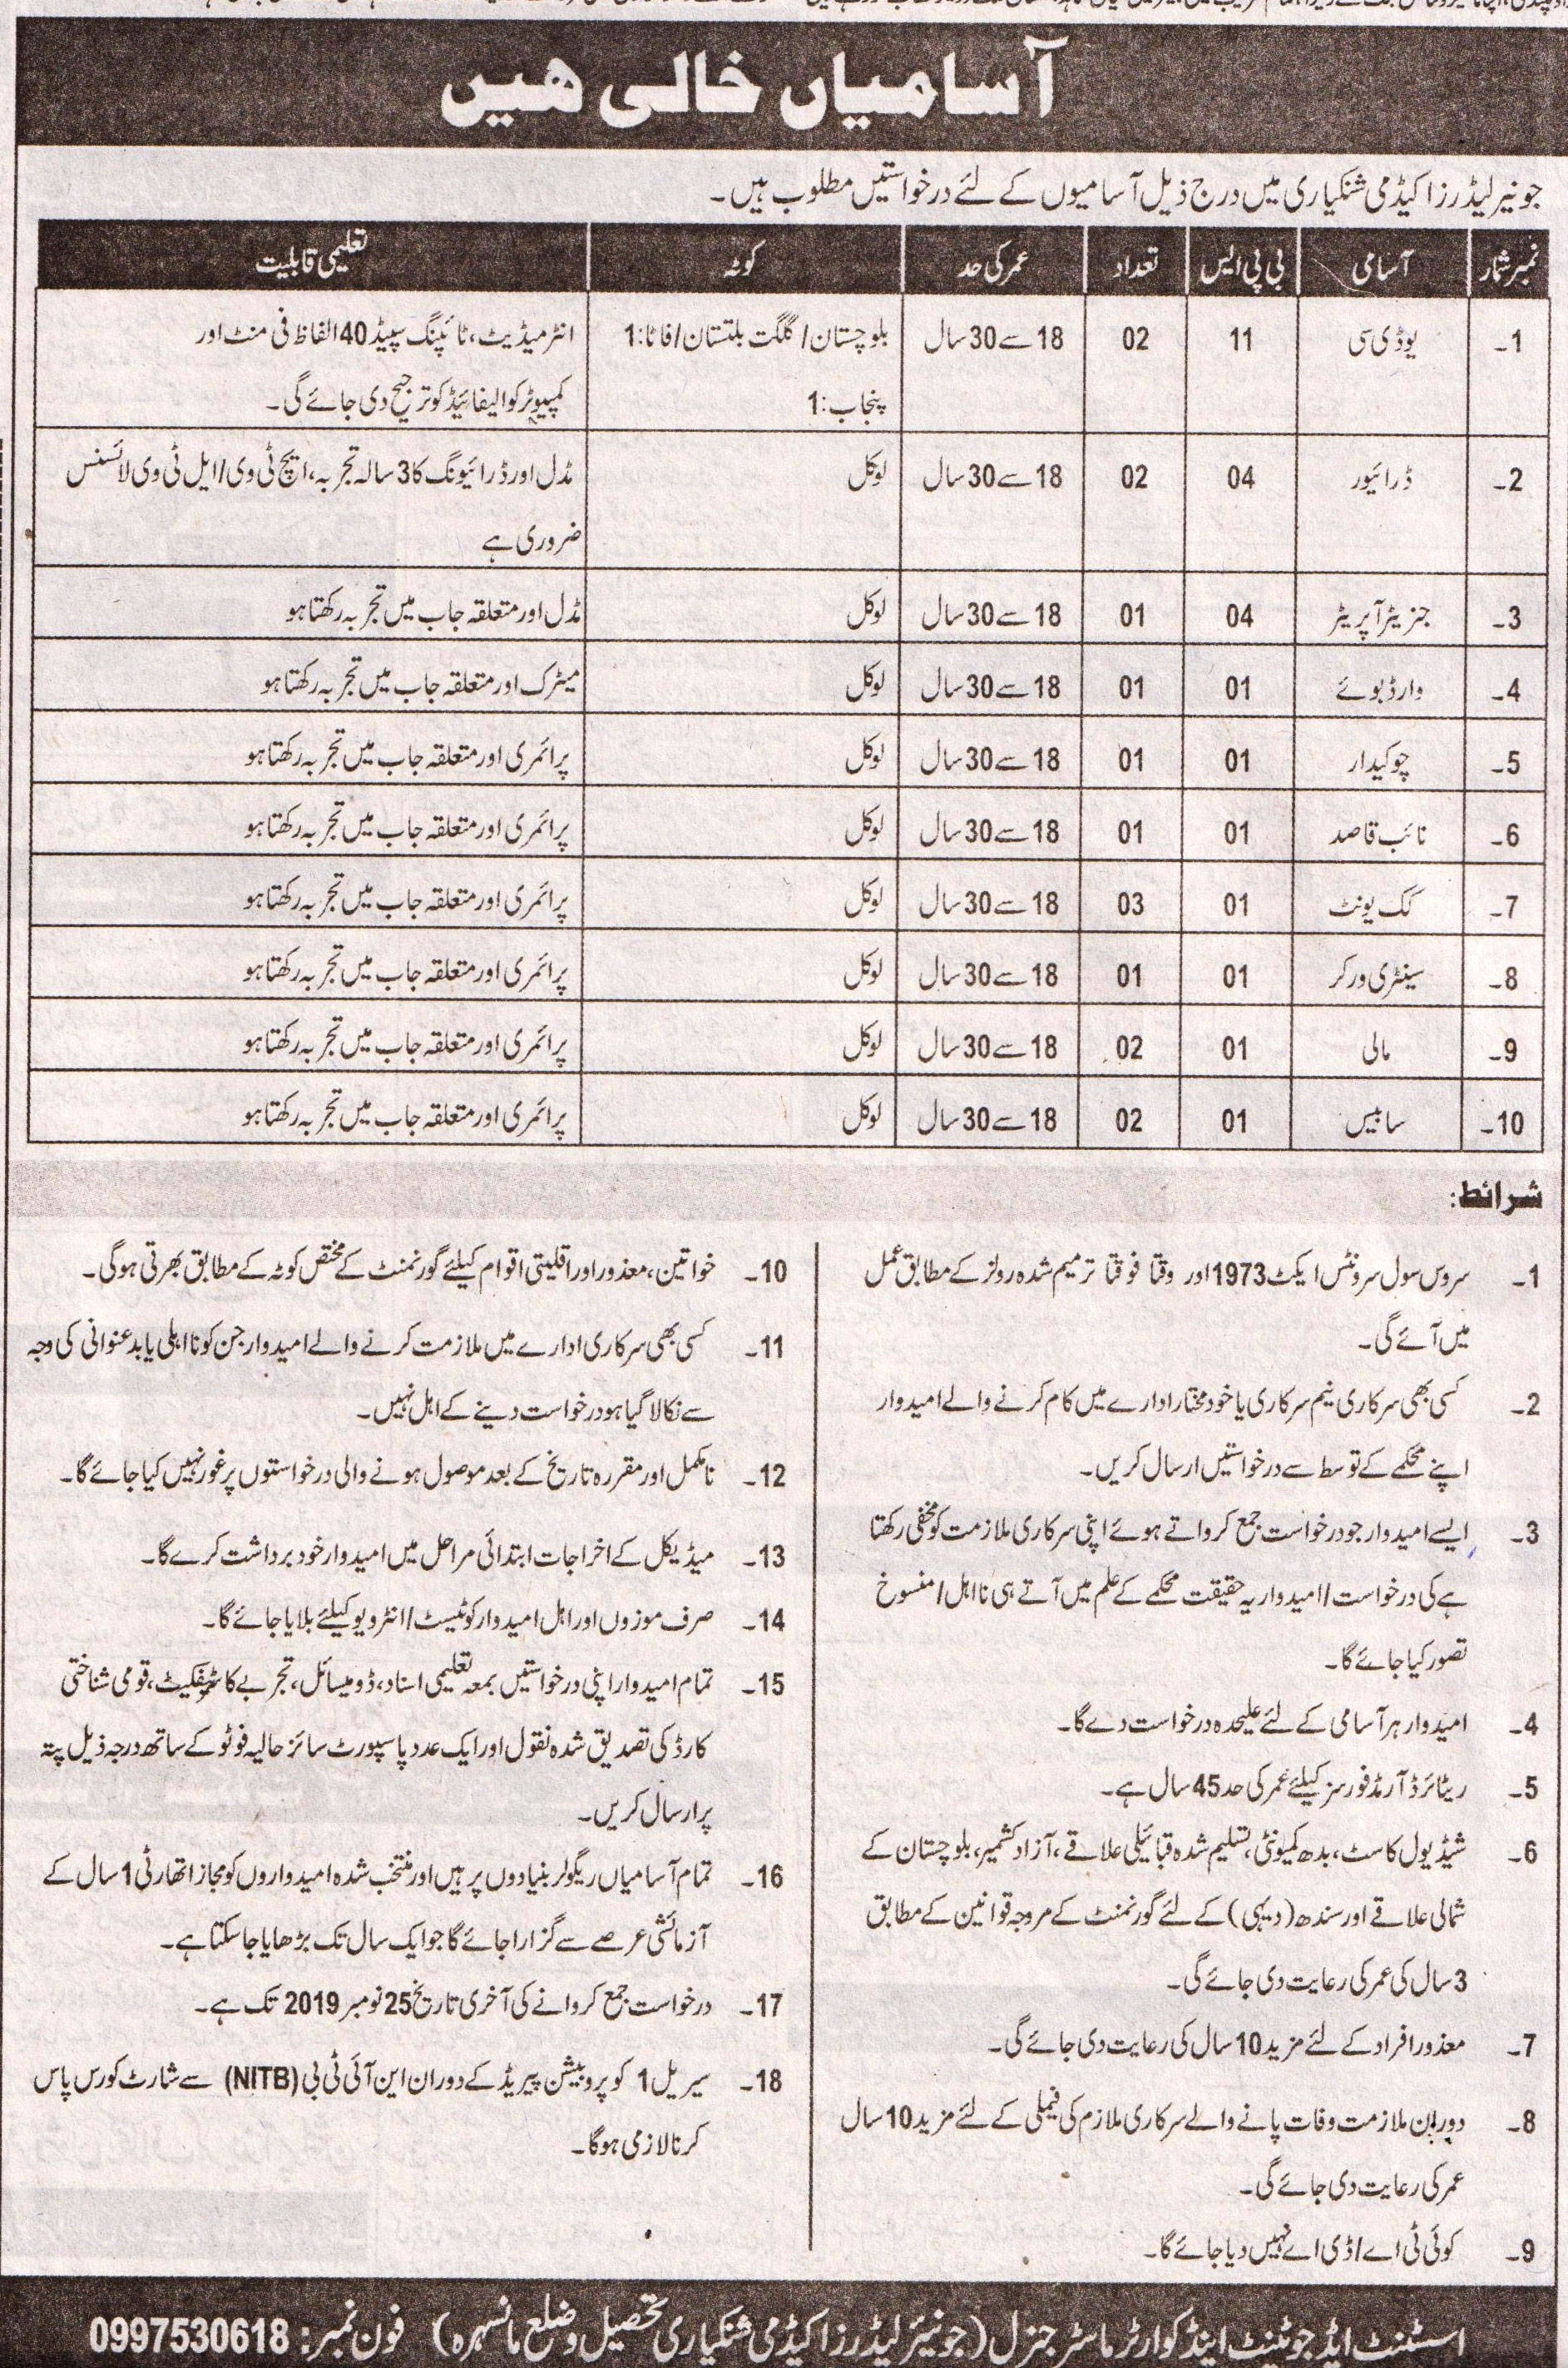 آسامیاں خالی ھیں
جونیر لیڈرز اکیڈمی شنکیاری میں درج ذیل آسامیوں کے لئے درخواستیں مطلوب ہیں۔
نمبر شمار آسامی بی پی ایس تعداد عمر کی حد کوٹہ تعلیمی قابلیت
1۔ یو ڈی سی 11 02 18 سے 30 سال بلوچستان/گلگت بلتستان/فاٹا:1 انٹرمیڈیٹ، ٹائپنگ سپیڈ 40 الفاظ فی منٹ اور
پنجاب:1 کمپیوٹر کوالیفائیڈ کو ترجیح دی جائے گی۔
2۔ ڈرائیور 04 02 18 سے 30 سال لوکل مڈل اور ڈرائیونگ کا 3 سالہ تجربہ، ایچ ٹی وی/ایل ٹی وی لائسنس
ضروری ہے
3۔ جنریٹر آپریٹر 04 01 18 سے 30 سال لوکل مڈل اور متعلقہ جاب میں تجربہ رکھتا ہو
4۔ وارڈ بوائے 01 01 18 سے 30 سال لوکل میٹرک اور متعلقہ جاب میں تجربہ رکھتا ہو
5۔ چوکیدار 01 01 18 سے 30 سال لوکل پرائمری اور متعلقہ جاب میں تجربہ رکھتا ہو
6۔ نائب قاصد 01 01 18 سے 30 سال لوکل پرائمری اور متعلقہ جاب میں تجربہ رکھتا ہو
7۔ کک یونٹ 01 03 18 سے 30 سال لوکل پرائمری اور متعلقہ جاب میں تجربہ رکھتا ہو
8۔ سینٹری ورکر 01 01 18 سے 30 سال لوکل پرائمری اور متعلقہ جاب میں تجربہ رکھتا ہو
9۔ مالی 01 02 18 سے 30 سال لوکل پرائمری اور متعلقہ جاب میں تجربہ رکھتا ہو
10۔ سایئیس 01 02 18 سے 30 سال لوکل پرائمری اور متعلقہ جاب میں تجربہ رکھتا ہو
شرائط:
1۔ سروس سول سرونٹس ایکٹ 1973 اور وقتا فوقتا ترمیم شدہ رولز کے مطابق عمل
میں آئے گی۔
2۔ کسی بھی سرکاری نیم سرکاری یا خود مختار ادارے میں کام کرنے والے امیدوار
اپنے محکمے کے توسط سے درخواستیں ارسال کریں۔
3۔ ایسے امیدوار جو درخواست جمع کرواتے ہوئے اپنی سرکاری ملازمت کو مخفی رکھتا
ہے کی درخواست/امیدوار یہ حقیقت محکمے کے علم میں آتے ہی نااہل/منسوخ
تصور کیا جائے گا۔
4۔ امیدوار ہر آسامی کے لئے علیحدہ درخواست دے گا۔
5۔ ریٹائرڈ آرمڈ فورسز کیلئے عمر کی حد 45 سال ہے۔
6۔ شیڈیول کاسٹ، بدھ کمیونٹی، تسلیم شدہ قبائیلی علاقے، آزاد کشمیر، بلوچستان کے
شمالی علاقے اور سندھ (دیہی) کے لئے گورنمنٹ کے مروجہ قوانین کے مطابق
3 سال کی عمر کی رعایت دی جائے گی۔
7۔ معذور افراد کے لئے مزید 10 سال کی رعایت دی جائے گی۔
8۔ دوران ملازمت وفات پانے والے سرکاری ملازم کی فیملی کے لئے مزید 10 سال
عمر کی رعایت دی جائے گی۔
9۔ کوئی ٹی اے/ڈی اے نہیں دیا جائے گا۔
10۔ خواتین، معذور اور اقلیتی اقوام کیلئے گورنمنٹ کے مختص کوٹہ کے مطابق بھرتی ہوگی۔
11۔ کسی بھی سرکاری ادارے میں ملازمت کرنے والے امیدوار جن کو نااہلی یا بدعنوانی کی وجہ
سے نکالا گیا ہو درخواست دینے کے اہل نہیں۔
12۔ نامکمل اور مقررہ تاریخ کے بعد موصول ہونے والی درخواستوں پر غور نہیں کیا جائے گا۔
13۔ میڈیکل کے اخراجات ابتدائی مراحل میں امیدوار خود برداشت کرے گا۔
14۔ صرف موزوں اور اہل امیدوار کو ٹیسٹ/انٹرویو کیلئے بلایا جائے گا۔
15۔ تمام امیدوار اپنی درخواستیں بمعہ تعلیمی اسناد، ڈومیسائل، تجربے کا سرٹیفکیٹ، قومی شناختی
کارڈ کی تصدیق شدہ نقول اور ایک عدد پاسپورٹ سائز حالیہ فوٹو کے ساتھ درجہ ذیل پتہ
پر ارسال کریں۔
16۔ تمام آسامیاں ریگولر بنیادوں پر ہیں اور منتخب شدہ امیدواروں کو مجاز اتھارٹی 1 سال کے
آزمائشی عرصے سے گزارا جائے گا جو ایک سال تک بڑھایا جا سکتا ہے۔
17۔ درخواست جمع کروانے کی آخری تاریخ 25 نومبر 2019 تک ہے۔
18۔ سیریل 1 کو پروبیشن پیریڈ کے دوران این آئی ٹی بی (NITB) سے شارٹ کورس پاس
کرنا لازمی ہوگا۔
اسسٹنٹ ایڈجوٹینٹ اینڈ کوارٹر ماسٹر جنرل (جونیئر لیڈرز اکیڈمی شنکیاری تحصیل و ضلع مانسہرہ) فون نمبر: 0997530618